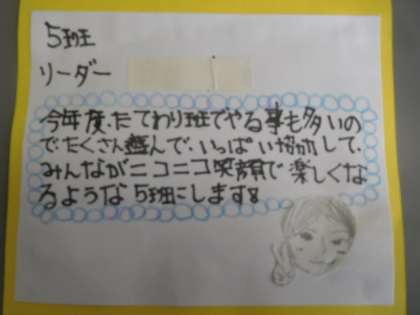 5班
リーダー
今年度、たてわり班でやる事も多いの
で、たくさん遊んで、いっぱい協力して、
みんながニコニコ笑顔で楽しくな
るような5班にします